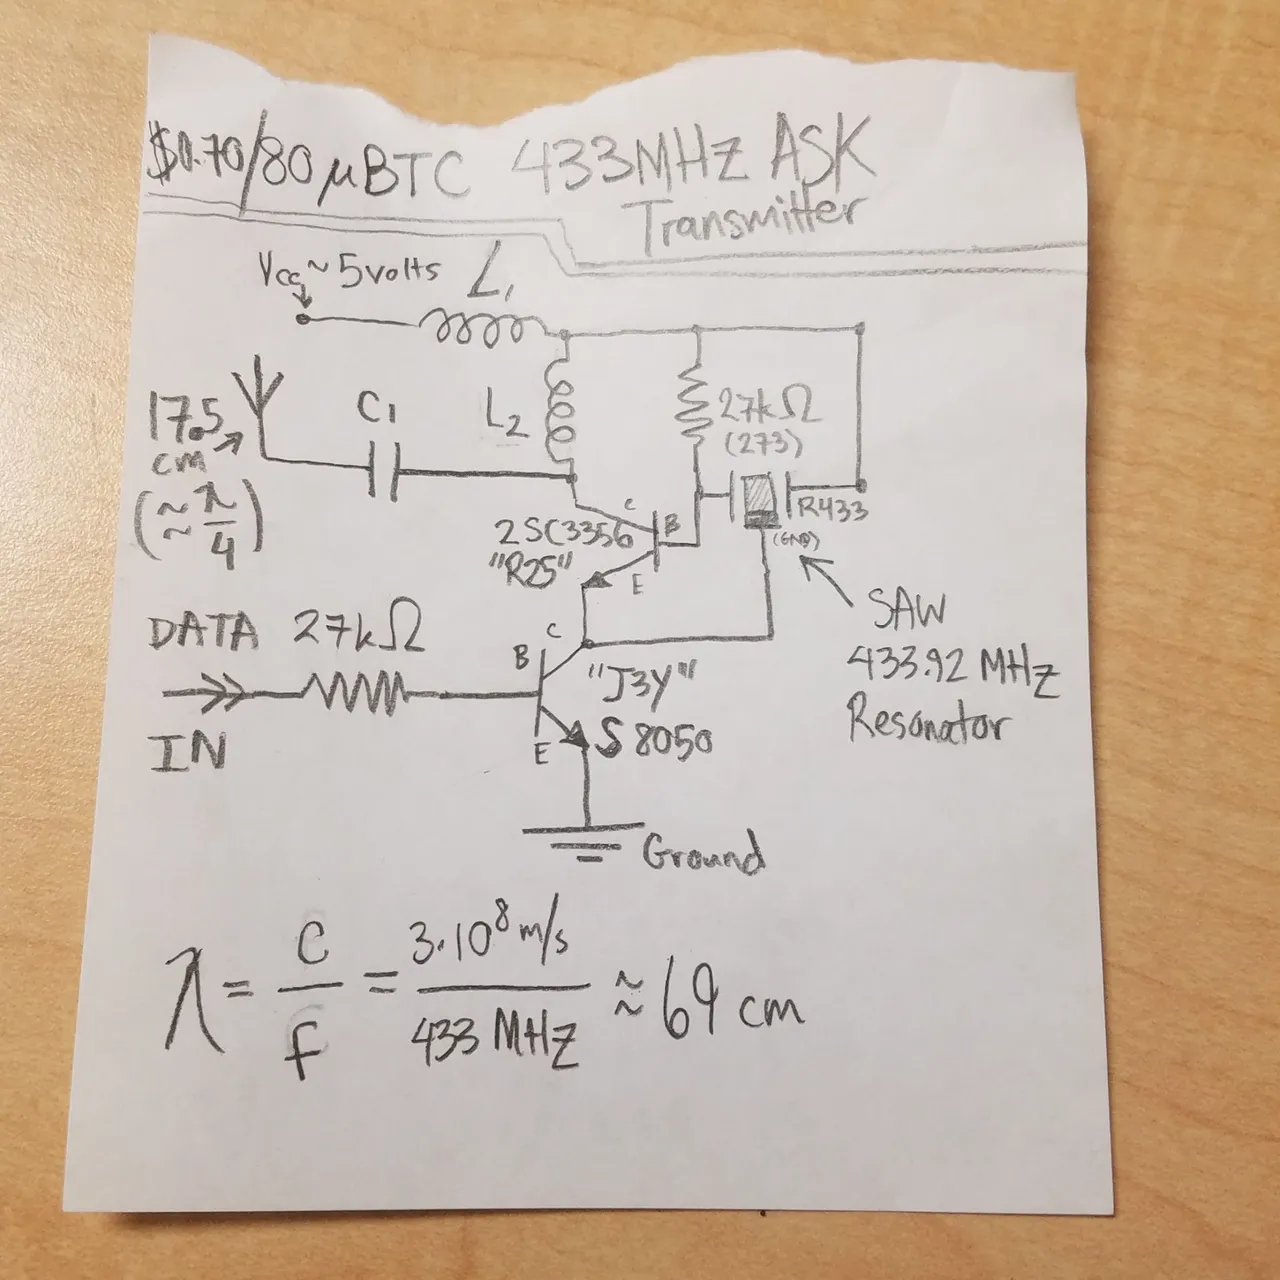 $0.70/80 μBTC 433MHz ASK
Transmitter
Vcc ~ 5volts
L1
17.5
cm
(≈ λ/4)
C1
L2
27kΩ
(273)
R433
(GND)
2SC3356
"R25"
C
B
E
SAW
433.92 MHz
Resonator
DATA
IN
27kΩ
C
B
E
"J3Y"
S 8050
Ground
λ = c/f = 3·10⁸ m/s / 433 MHz ≈ 69 cm